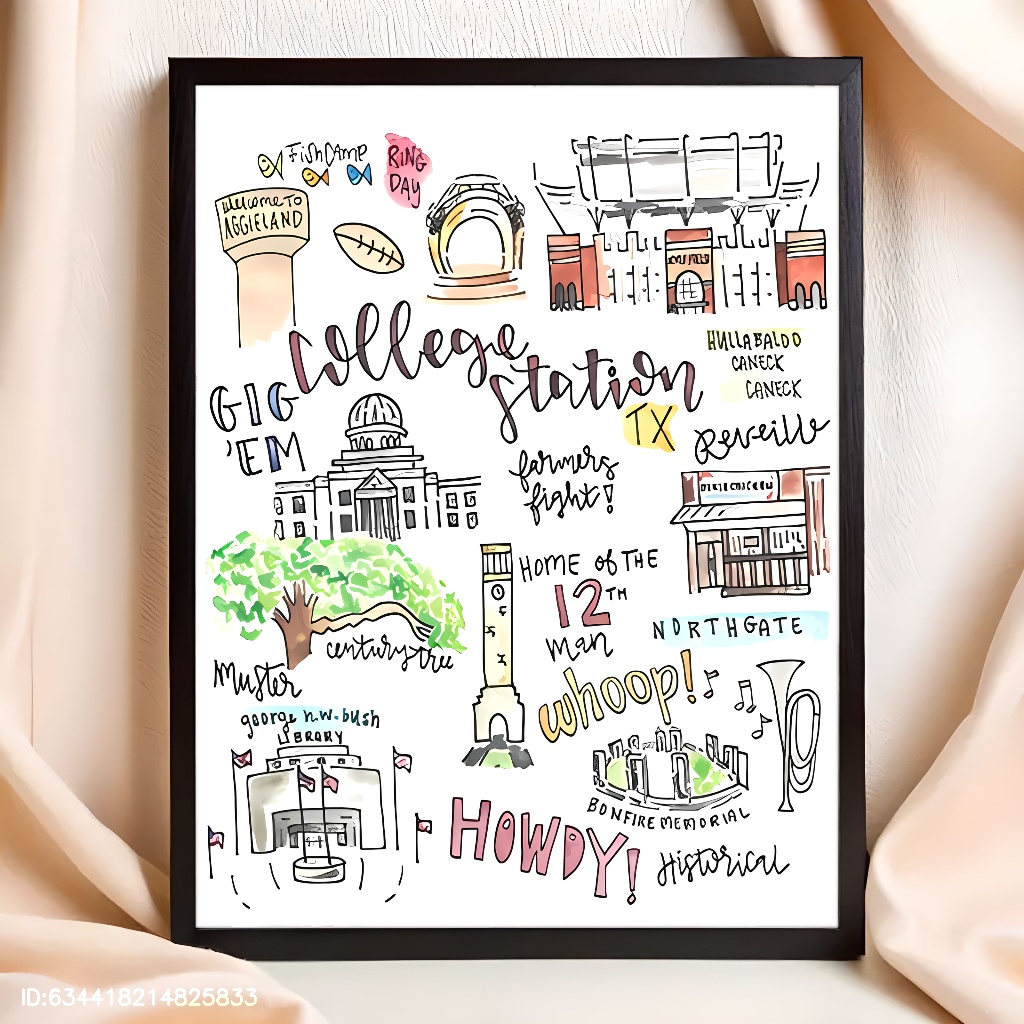 Fish Camp
RING
DAY
Welcome To
AGGIELAND
College
Station
TX
HULLABALOO
CANECK
CANECK
GIG
'EM
Reveille
farmers
fight!
HOME of THE
12TH
man
NORTHGATE
century tree
Muster
whoop!
george h.w. bush
LIBRARY
BONFIRE MEMORIAL
HOWDY!
Historical
ID:634418214825833